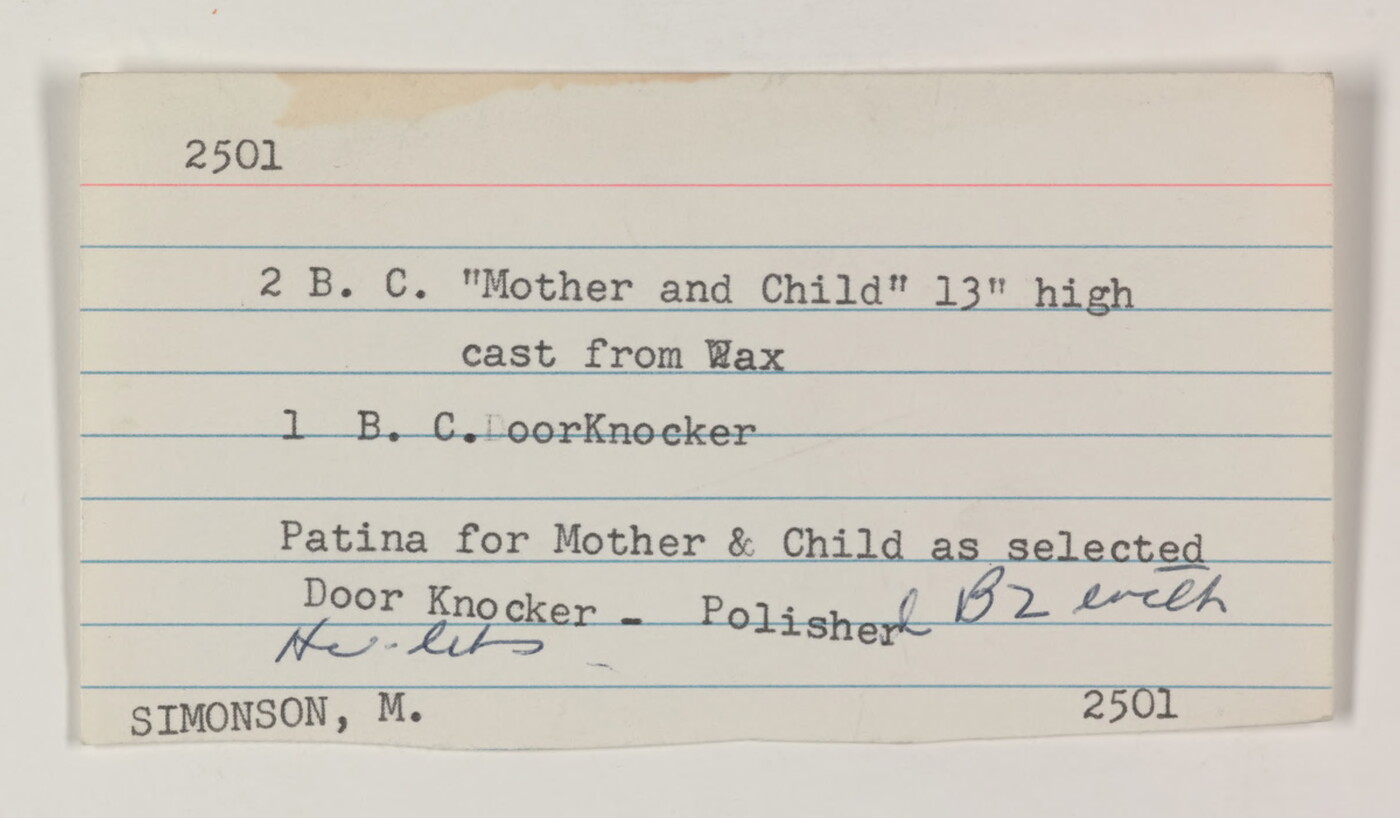 2501
2 B. C. "Mother and Child" 13" high
cast from Wax
1 B. C. DoorKnocker
Patina for Mother & Child as selected
Door Knocker - Polished BZ with
Hi-lits
SIMONSON, M.
2501